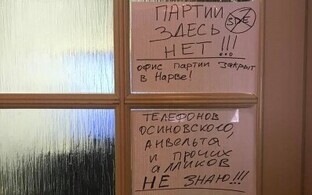 ПАРТИИ
ЗДЕСЬ SDE
НЕТ!!!
ОФИС ПАРТИИ ЗАКРЫТ
В НАРВЕ!
ТЕЛЕФОНОВ
ОСИНОВСКОГО,
АНВЕЛЬТА
И ПРОЧИХ
АЛЛИКОВ
НЕ ЗНАЮ!!!